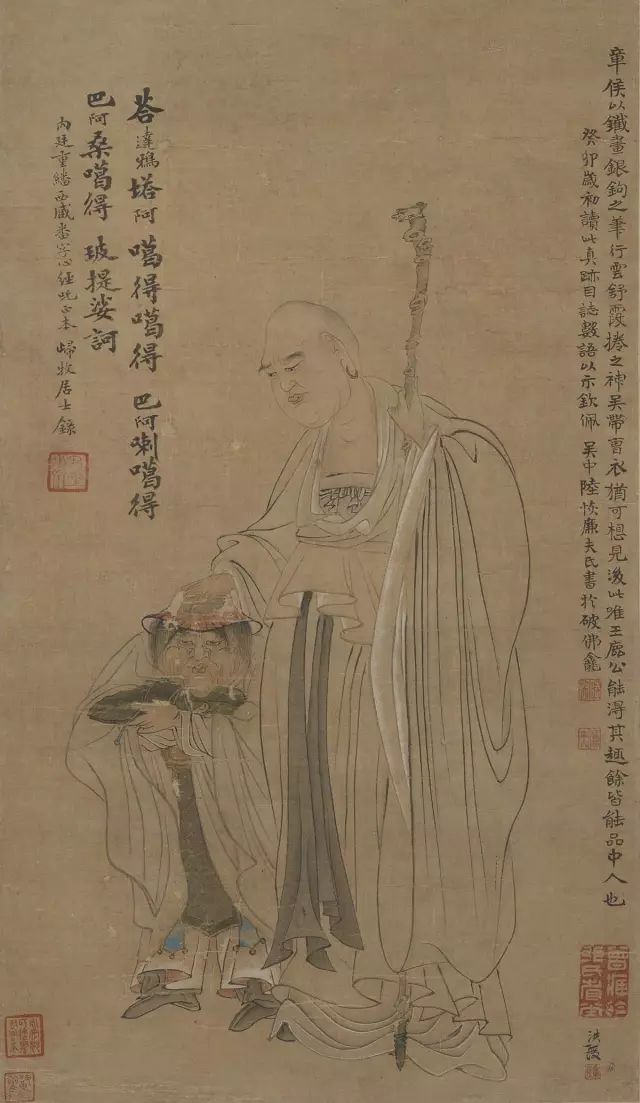 章侯以鐵畫銀鉤之筆行雲舒霞捲之神吳帶曹衣猶可想見後此唯王公能得其趣餘皆能品中人也
癸卯歲初讀此真跡目誌數語以示欽佩 吳中陸恢廉夫氏書於破佛龕
洪綬
荅達鴉塔阿 噶得噶得 巴阿喇噶得
巴阿桑噶得 玻提娑訶
內廷重繙西藏番字心經咒正本 歸牧居士錄